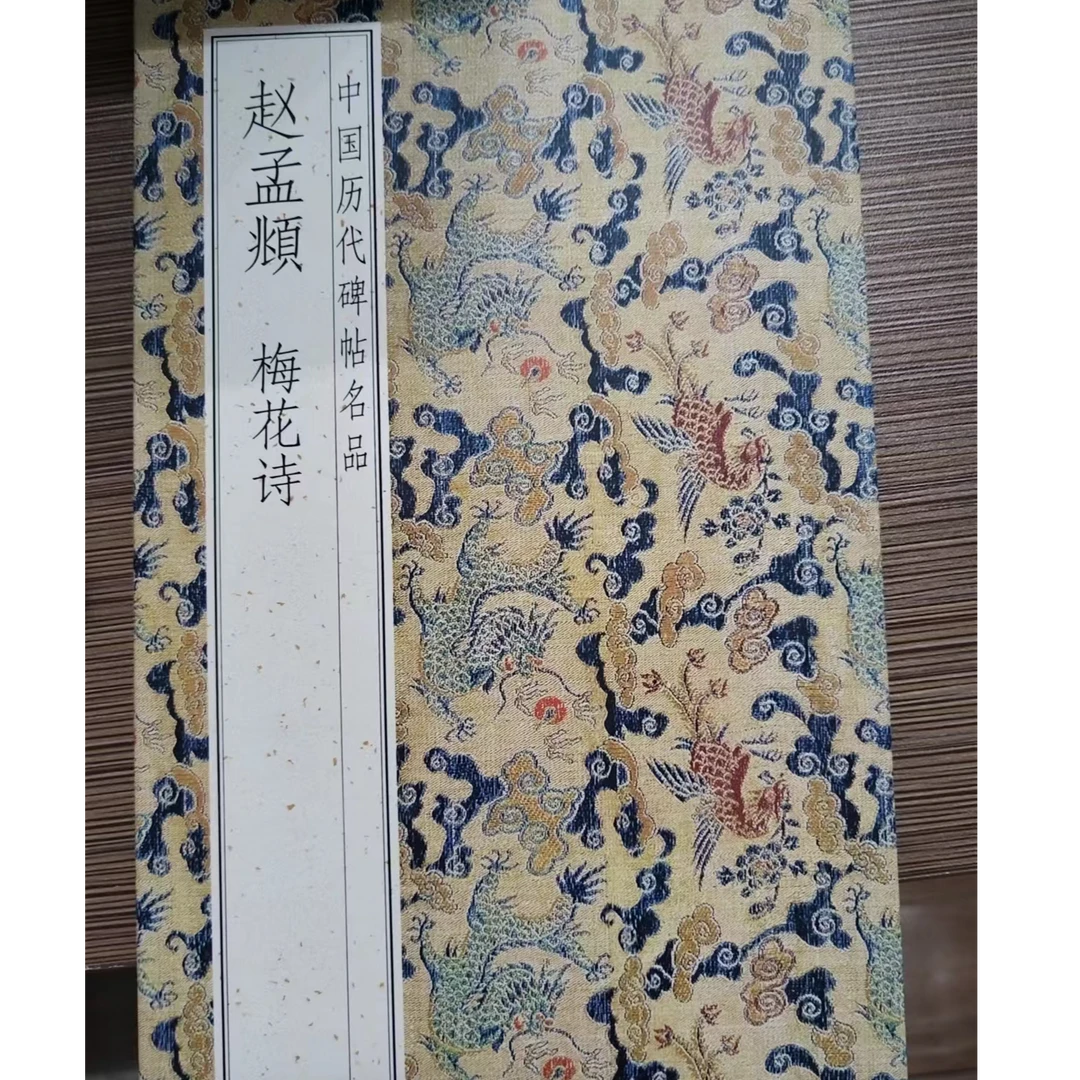 中国历代碑帖名品
赵孟頫 梅花诗